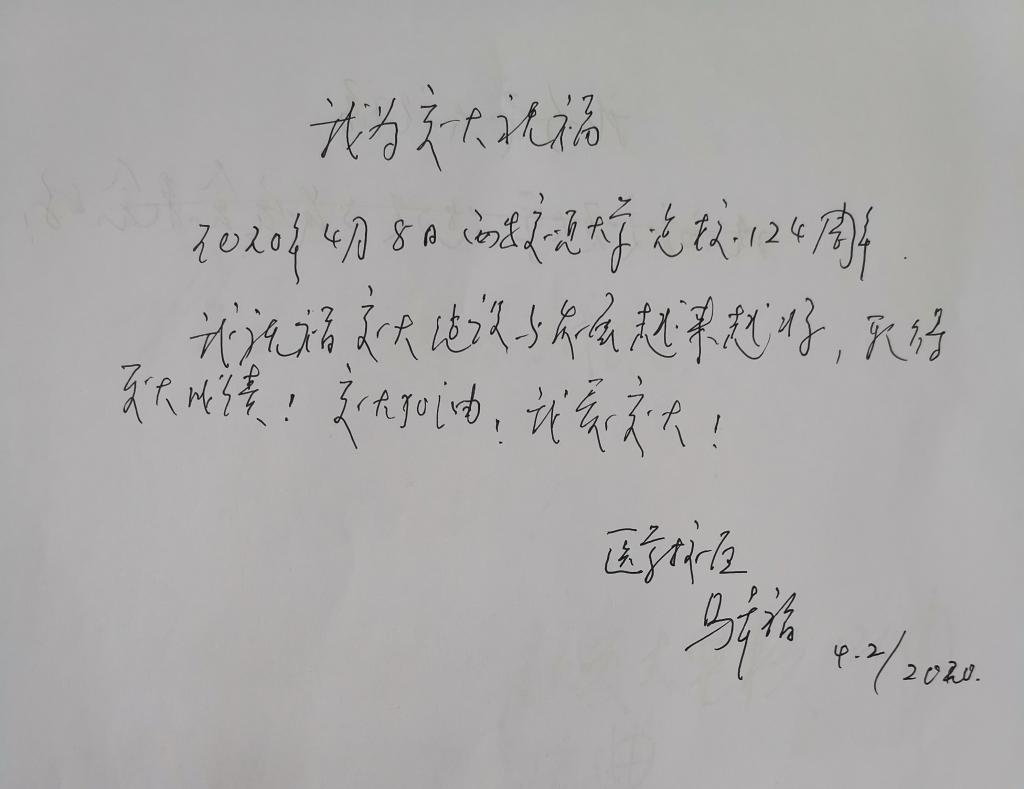 我为交大祝福
2020年4月8日西安交通大学建校124周年.
我祝福交大建设与发展越来越好,取得
更大成绩!交大加油!我爱交大!
医学校区
马幸福
4.2/2020.